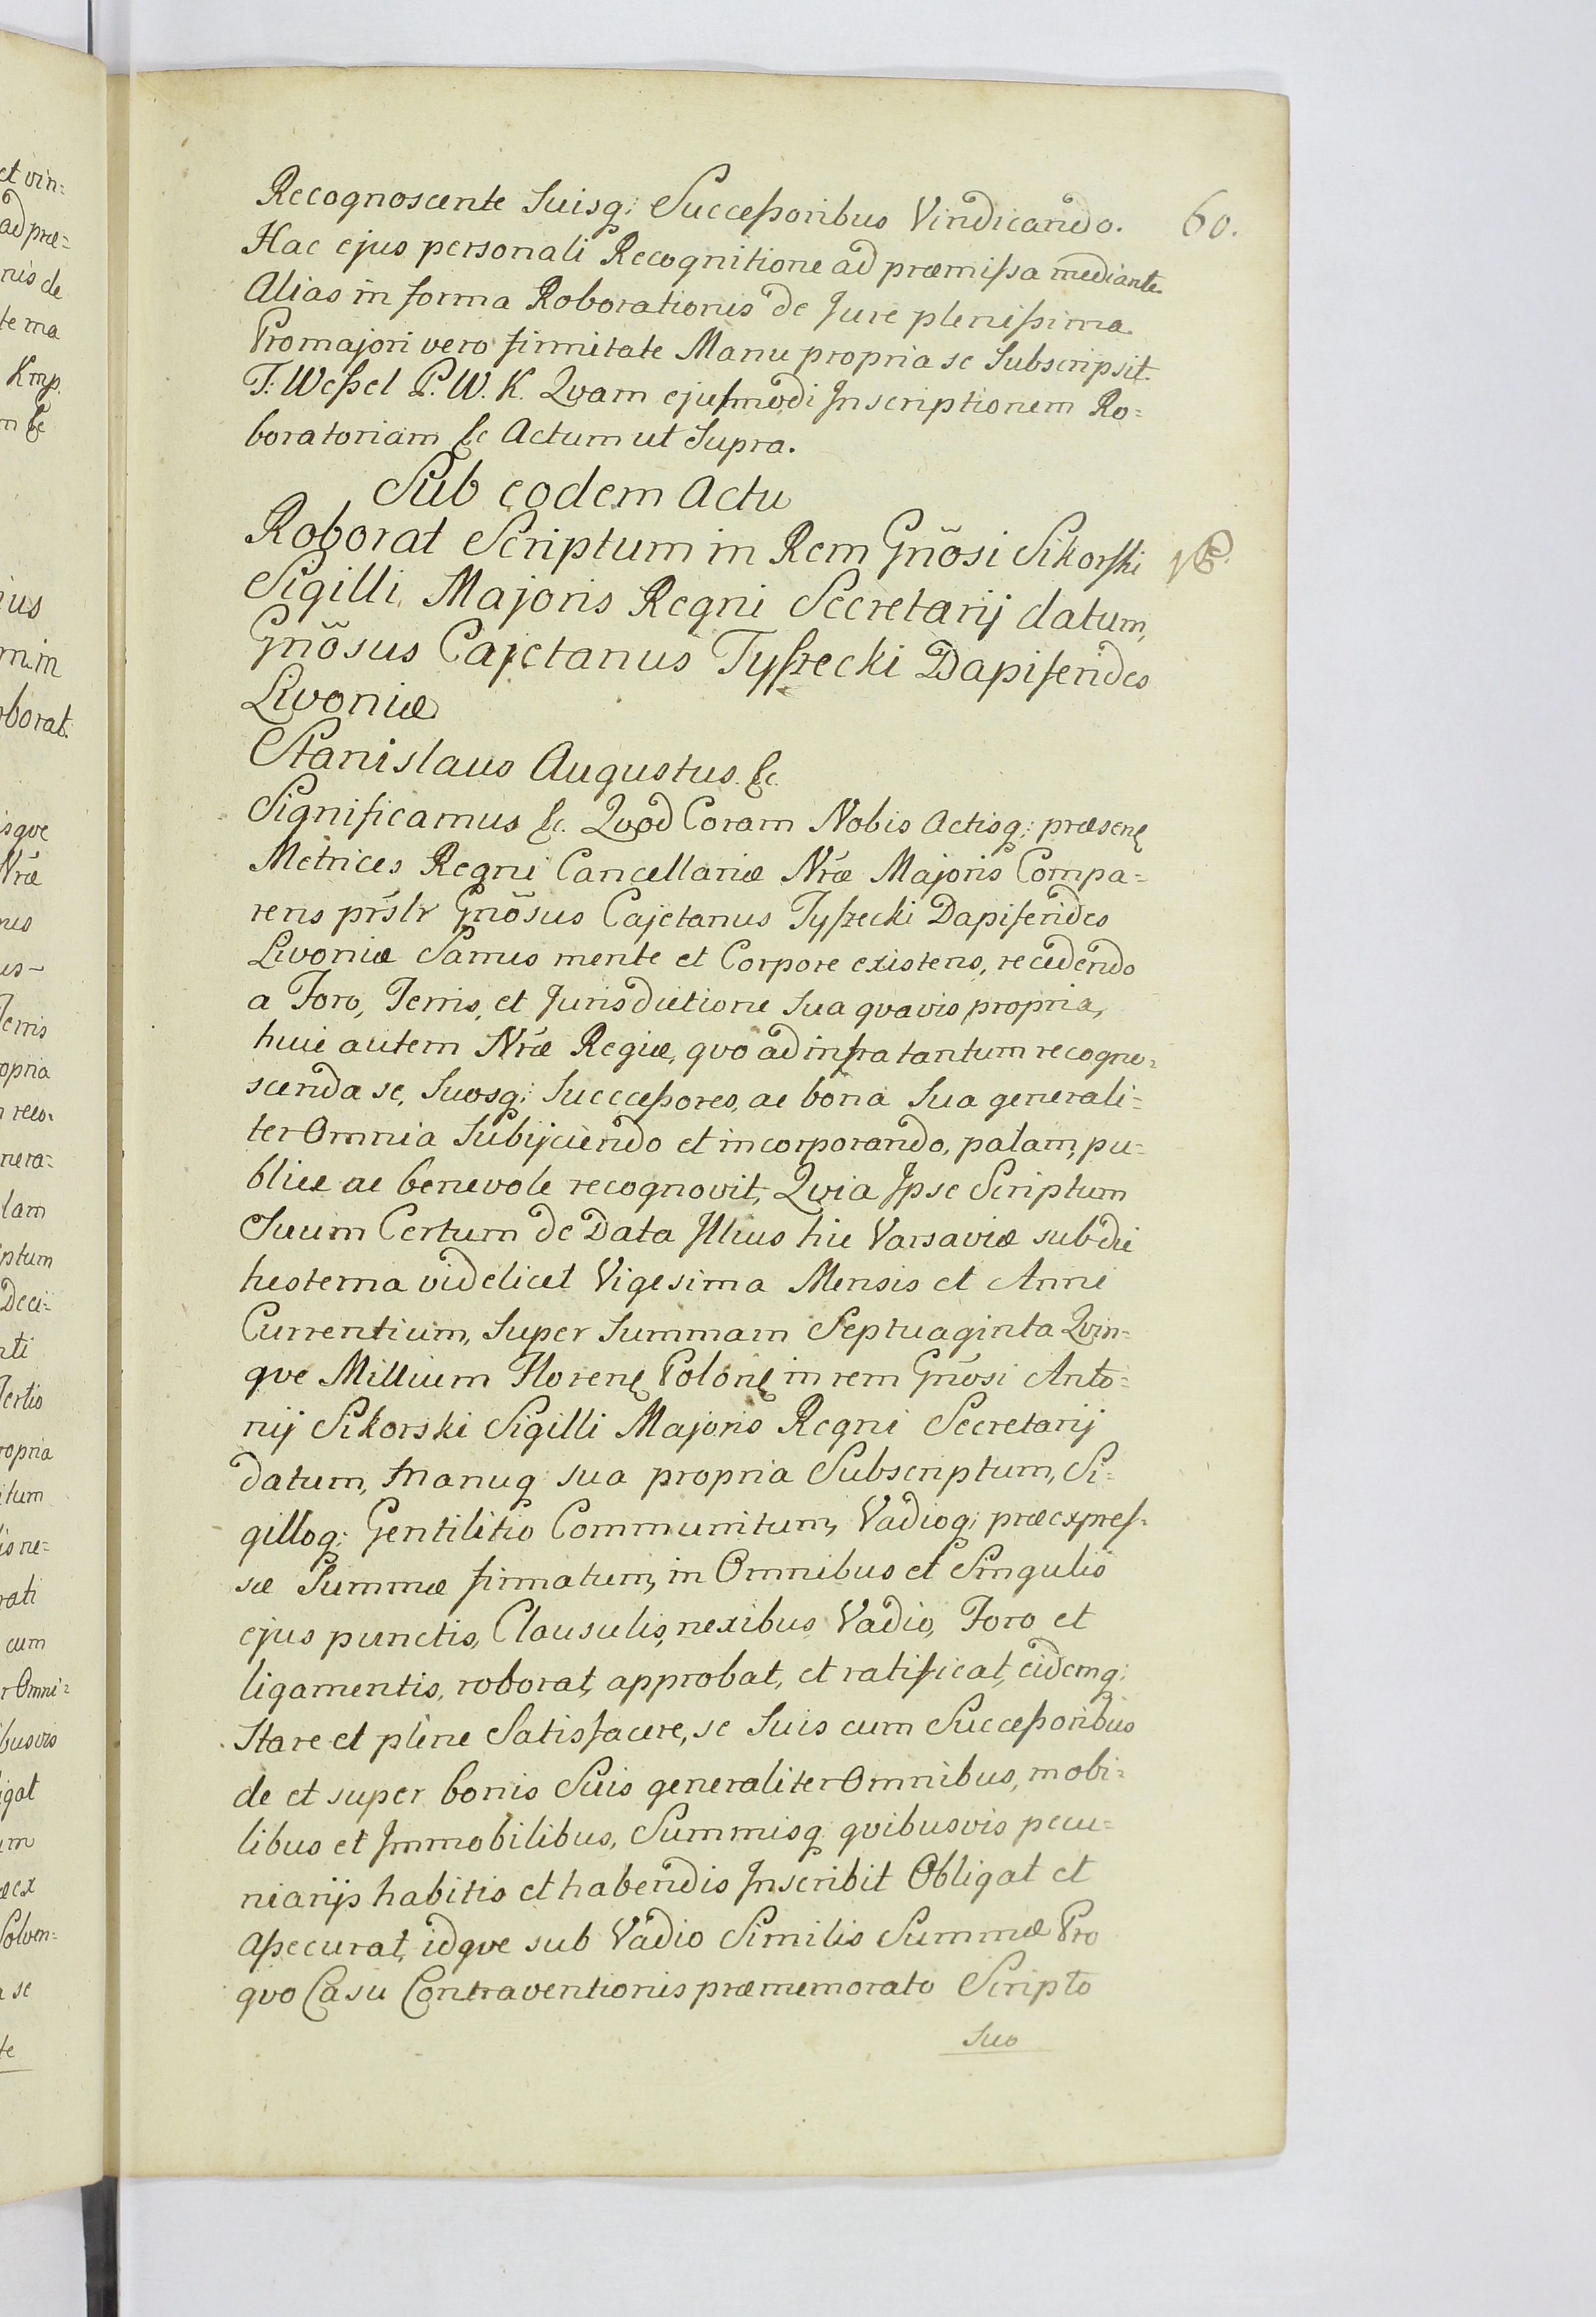 Recognoscente Suisq; Succeſsoribus Vindicando. 60.
Hac ejus personali Recognitione ad præmiſsa mediante.
Alias in forma Roborationis de Jure pleniſsima.
Pro majori vero firmitate Manu propria se Subscripsit.
T: Weſsel P. W. K. Qvam ejuſmodi Inscriptionem Ro=
boratoriam &c Actum ut Supra.
Sub eodem Actu
Roborat Scriptum in Rem Gñosi Sikorſki
Sigilli Majoris Regni Secretarij datum,
Gñosus Cajetanus Tyſzecki Dapiferides
Livoniæ
Stanislaus Augustus &c.
Significamus &c. Qvod Coram Nobis Actisq; præsenꝭ
Metrices Regni Cancellariæ Nr̃æ Majoris Compa=
rens pr̃slr Gñosus Cajetanus Tyſzecki Dapiferides
Livoniæ Sanus mente et Corpore existens, recedendo
a Foro, Terris, et Jurisdictione Sua qvavis propria,
huic autem Nr̃æ Regiæ, qvo ad infra tantum recogno=
scenda se, Suosq; Succceſsores, ac bona Sua generali=
ter Omnia Subijciendo et incorporando, palam, pu=
blice ac benevole recognovit, Qvia Ipse Scriptum
Suum Certum de Data Illius hic Varsaviæ sub die
hesterna videlicet Vigesima Mensis et Anni
Currentium, Super Summam Septuaginta Qvin=
qve Millium Florenꝭ Polonꝭ in rem Gñosi Anto=
nij Sikorski Sigilli Majoris Regni Secretarij
datum, Manuq sua propria Subscriptum, Si=
gilloq; Gentilitio Communitum, Vadioq; præexpreſ=
sæ Summæ firmatum, in Omnibus et Singulis
ejus punctis, Clausulis, nexibus, Vadio, Foro et
ligamentis, roborat, approbat, et ratificat, eidemq;
Stare et plene Satisfacere, se Suis cum Succeſsoribus
de et super bonis Suis generaliter Omnibus, mobi=
libus et Immobilibus, Summisq qvibusvis pecu=
niarijs habitis et habendis Inscribit Obligat et
Aſsecurat, idqve sub Vadio Similis Summæ Pro
qvo Casu Contraventionis præmemorato Scripto
Suo